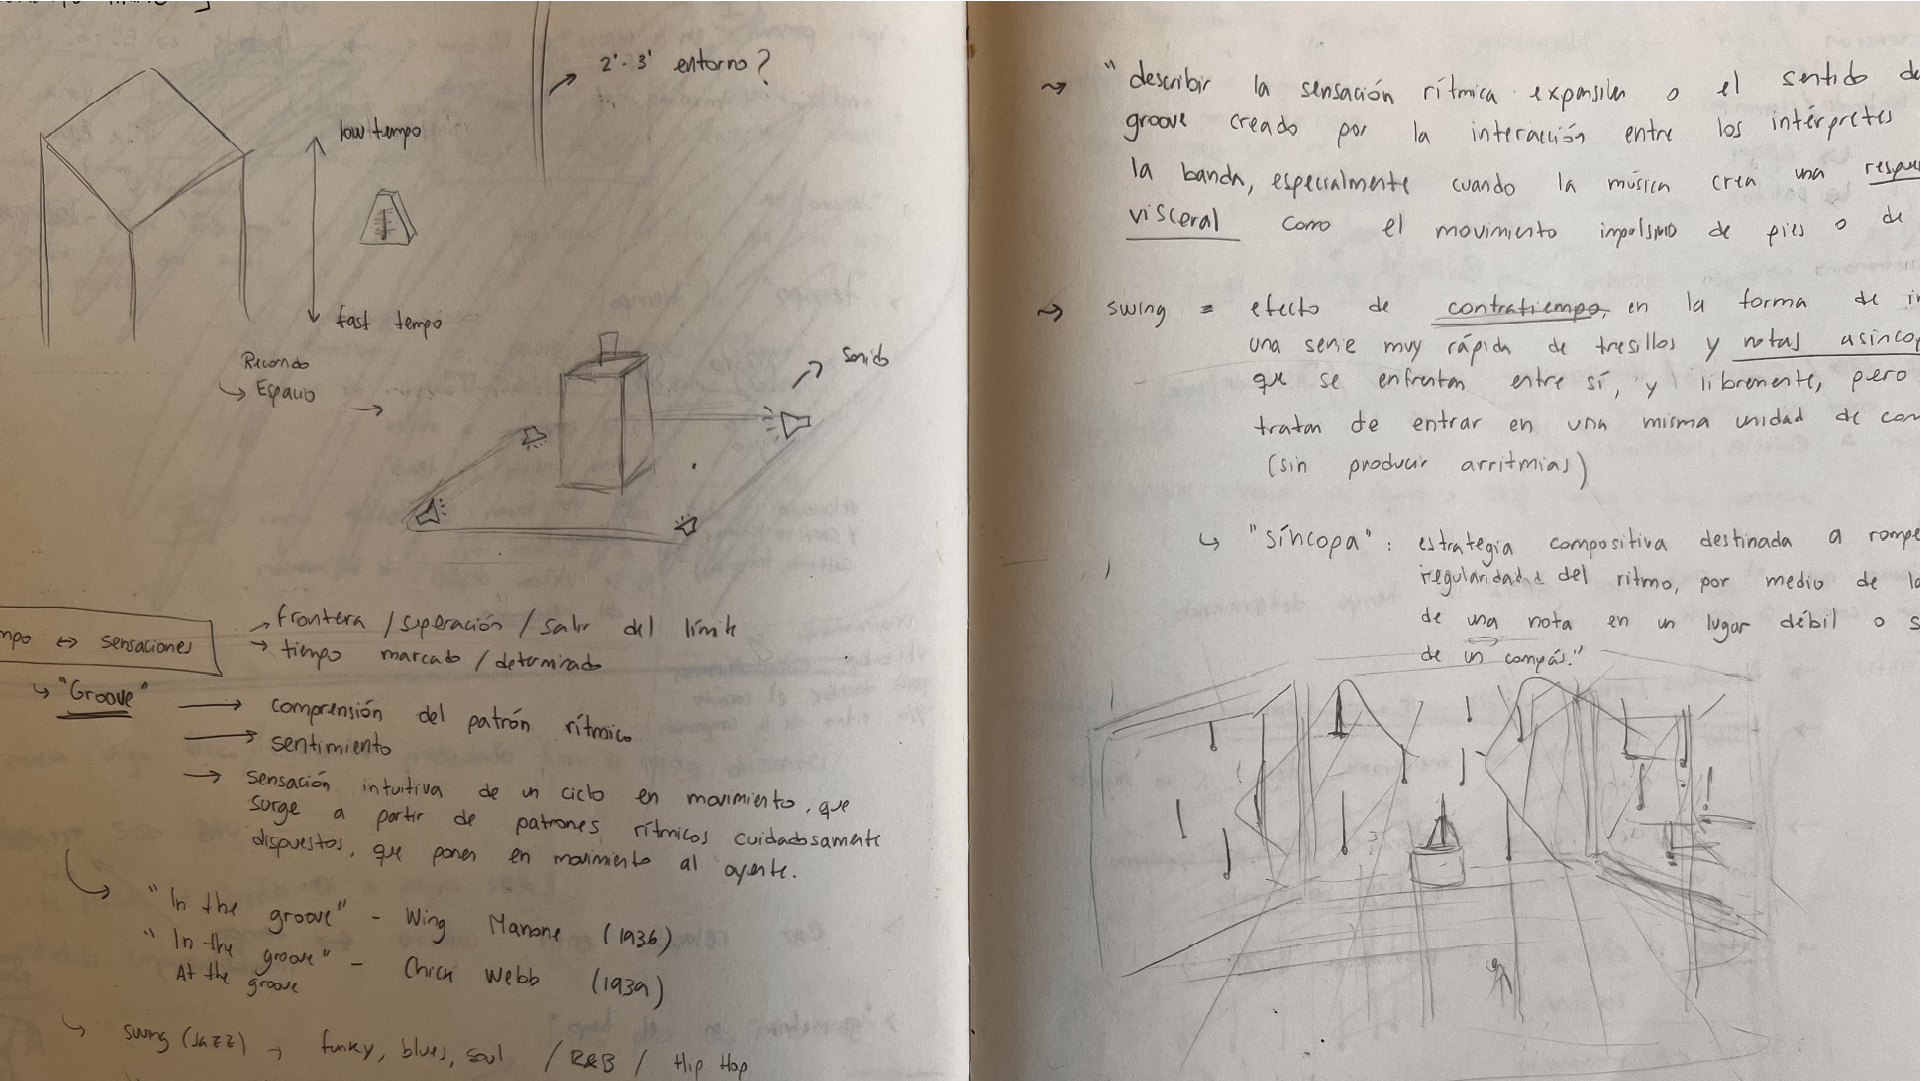 2'-3' entorno?
low tempo
fast tempo
Recorrido
↳ Espacio →
Sonido
mpo ↔ sensaciones
→ frontera / superación / salir del límite
→ tiempo marcado / determinado
↳ "Groove" → comprensión del patrón rítmico
→ sentimiento
→ sensación intuitiva de un ciclo en movimiento, que
surge a partir de patrones rítmicos cuidadosamente
dispuestos, que ponen en movimiento al oyente.
"In the groove" - Wing Manone (1936)
"In the groove" - Chick Webb (1939)
At the groove
↳ swing (Jazz) → funky, blues, soul / R&B / Hip Hop
"describir la sensación rítmica expansiva o el sentido de
groove creado por la interacción entre los intérpretes
la banda, especialmente cuando la música crea una respu
visceral como el movimiento impulsivo de pies o de
swing = efecto de contratiempo, en la forma de in
una serie muy rápida de tresillos y notas asincop
que se enfrentan entre sí, y libremente, pero
tratan de entrar en una misma unidad de com
(sin producir arritmias)
↳ "síncopa": estrategia compositiva destinada a rompe
regularidad del ritmo, por medio de la
de una nota en un lugar débil o s
de un compás."